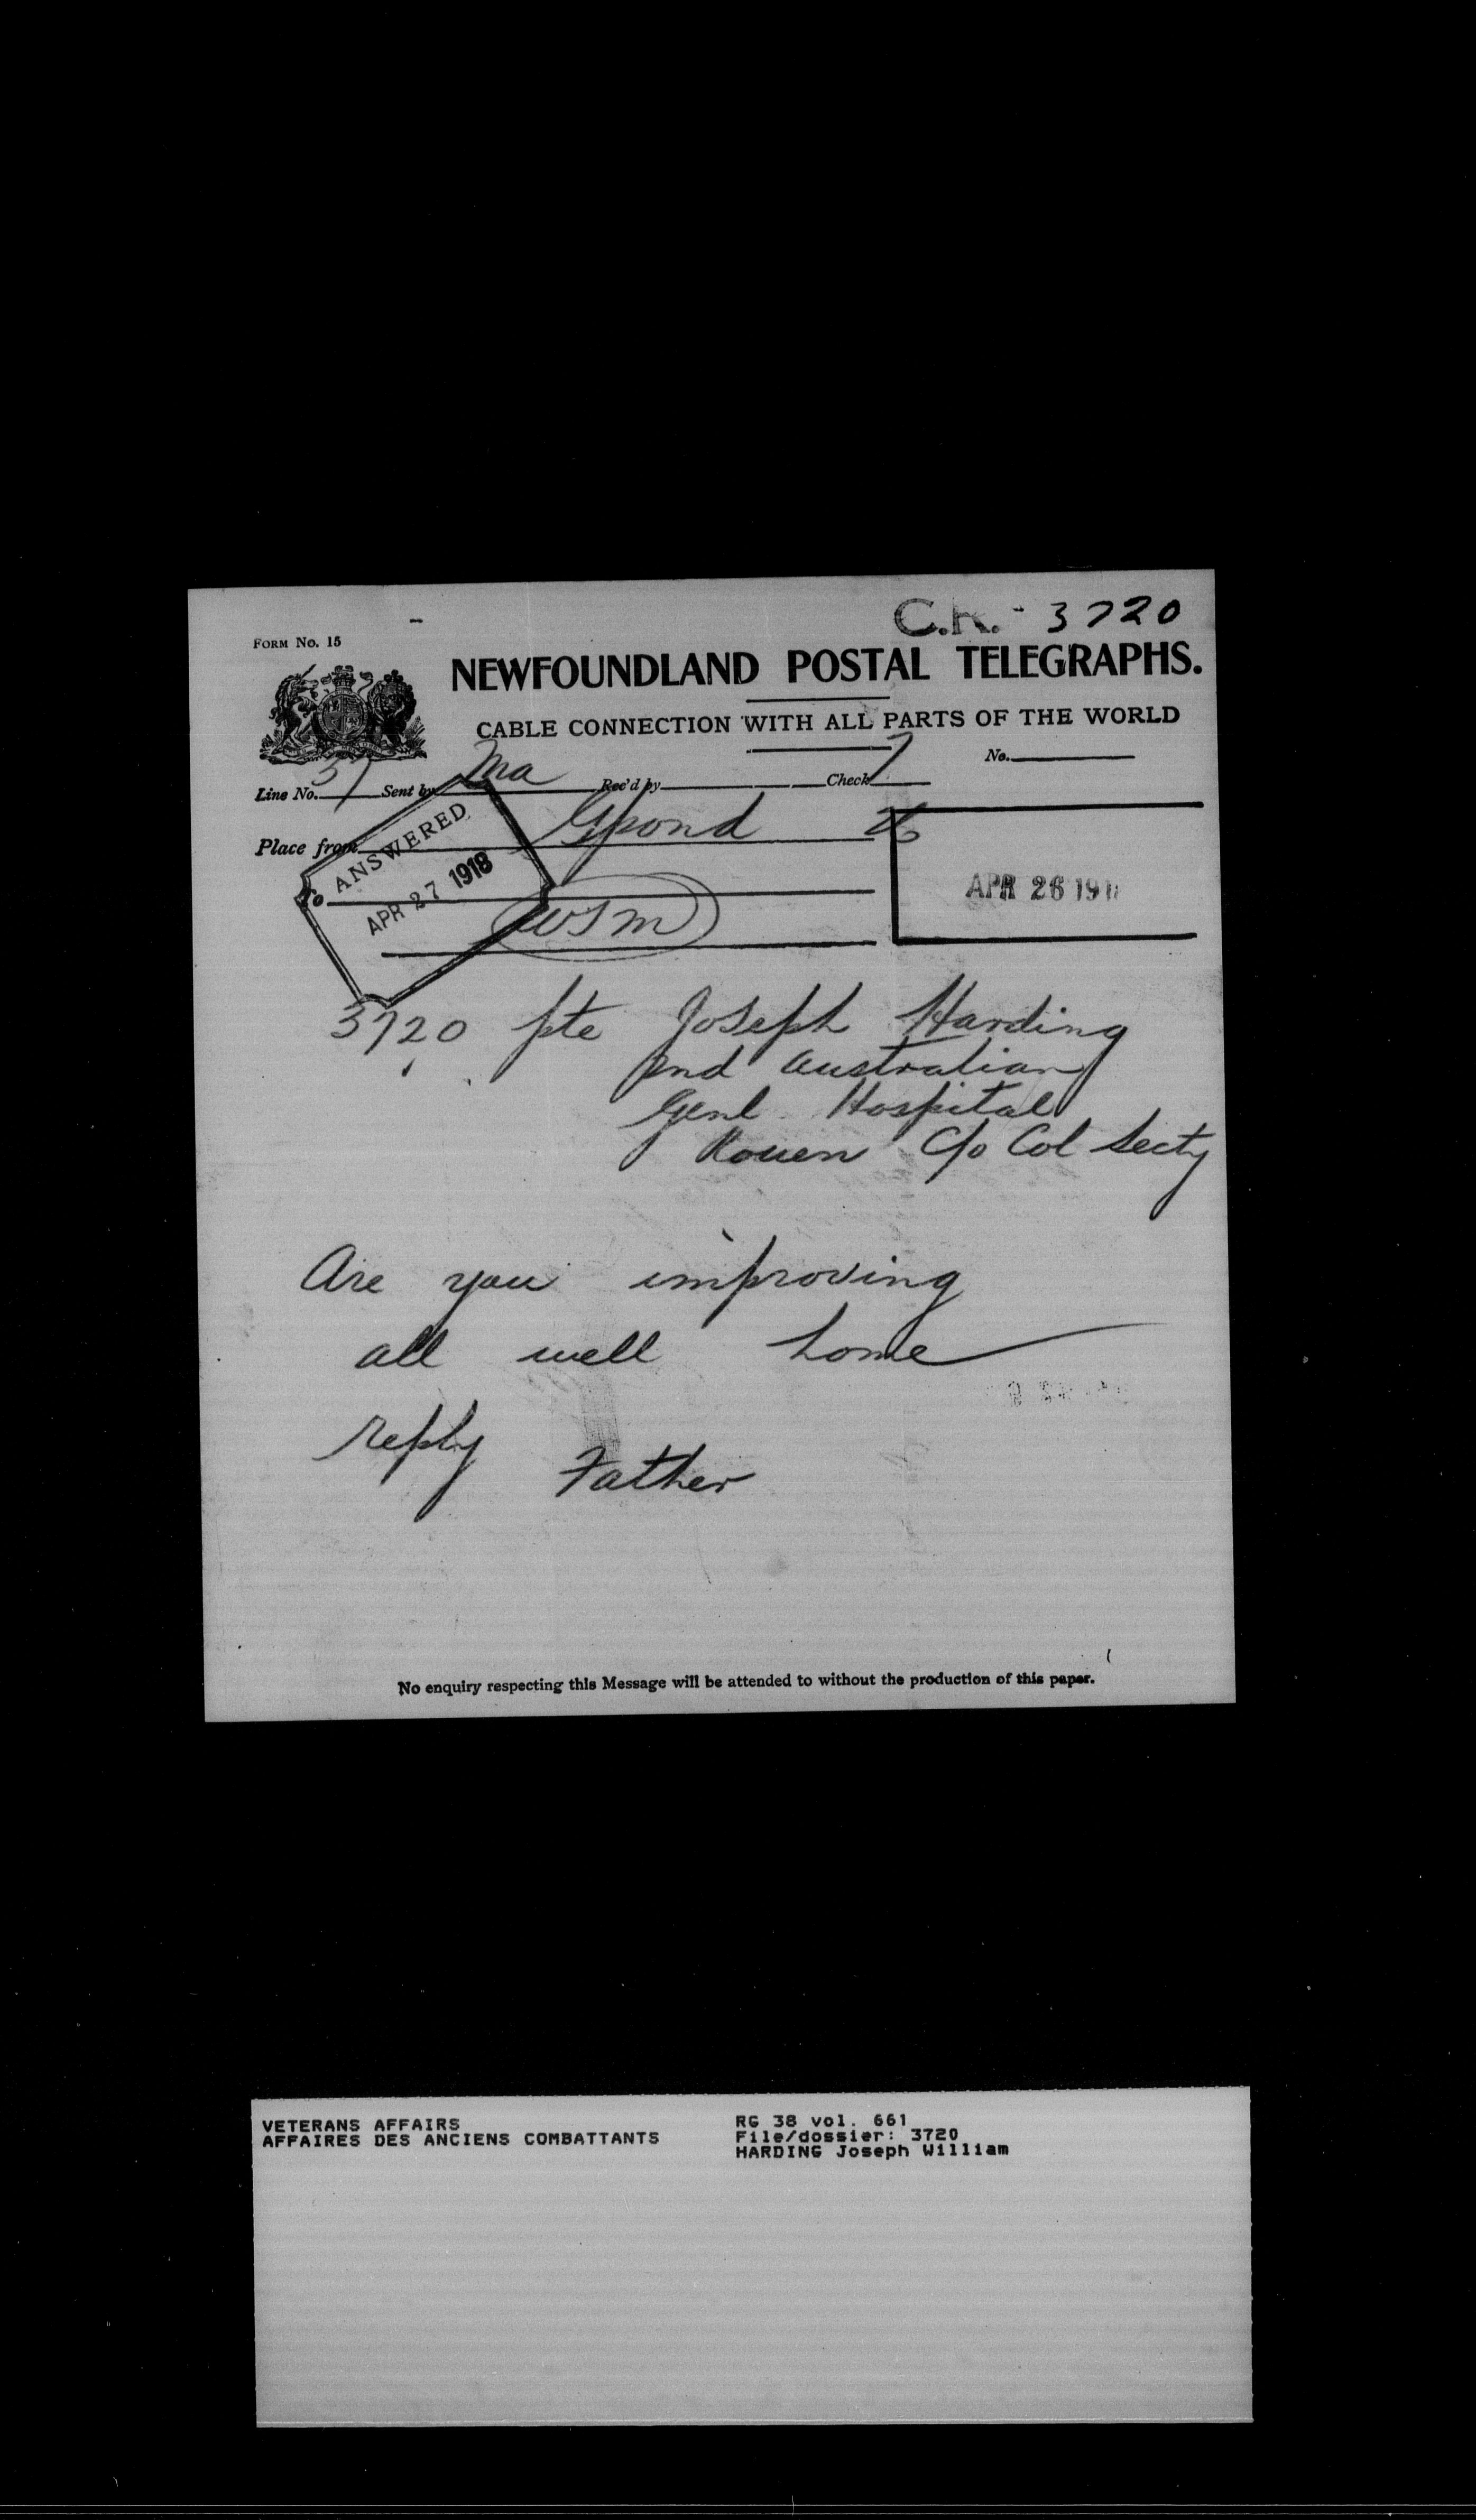 C.R. - 3720
FORM No. 15
NEWFOUNDLAND POSTAL TELEGRAPHS.
CABLE CONNECTION WITH ALL PARTS OF THE WORLD
No.
Line No. 57 Sent by Ma Rec'd by Check 7
Place from Gpond 26
To
ANSWERED
APR 27 1918
APR 26 191
WSM
3720 Pte Joseph Harding
2nd Australian
Genl Hospital
Rouen C/o Col Secty
Are you improving
all well home
reply
Father
No enquiry respecting this Message will be attended to without the production of this paper.
VETERANS AFFAIRS
AFFAIRES DES ANCIENS COMBATTANTS
RG 38 vol. 661
File/dossier: 3720
HARDING Joseph William